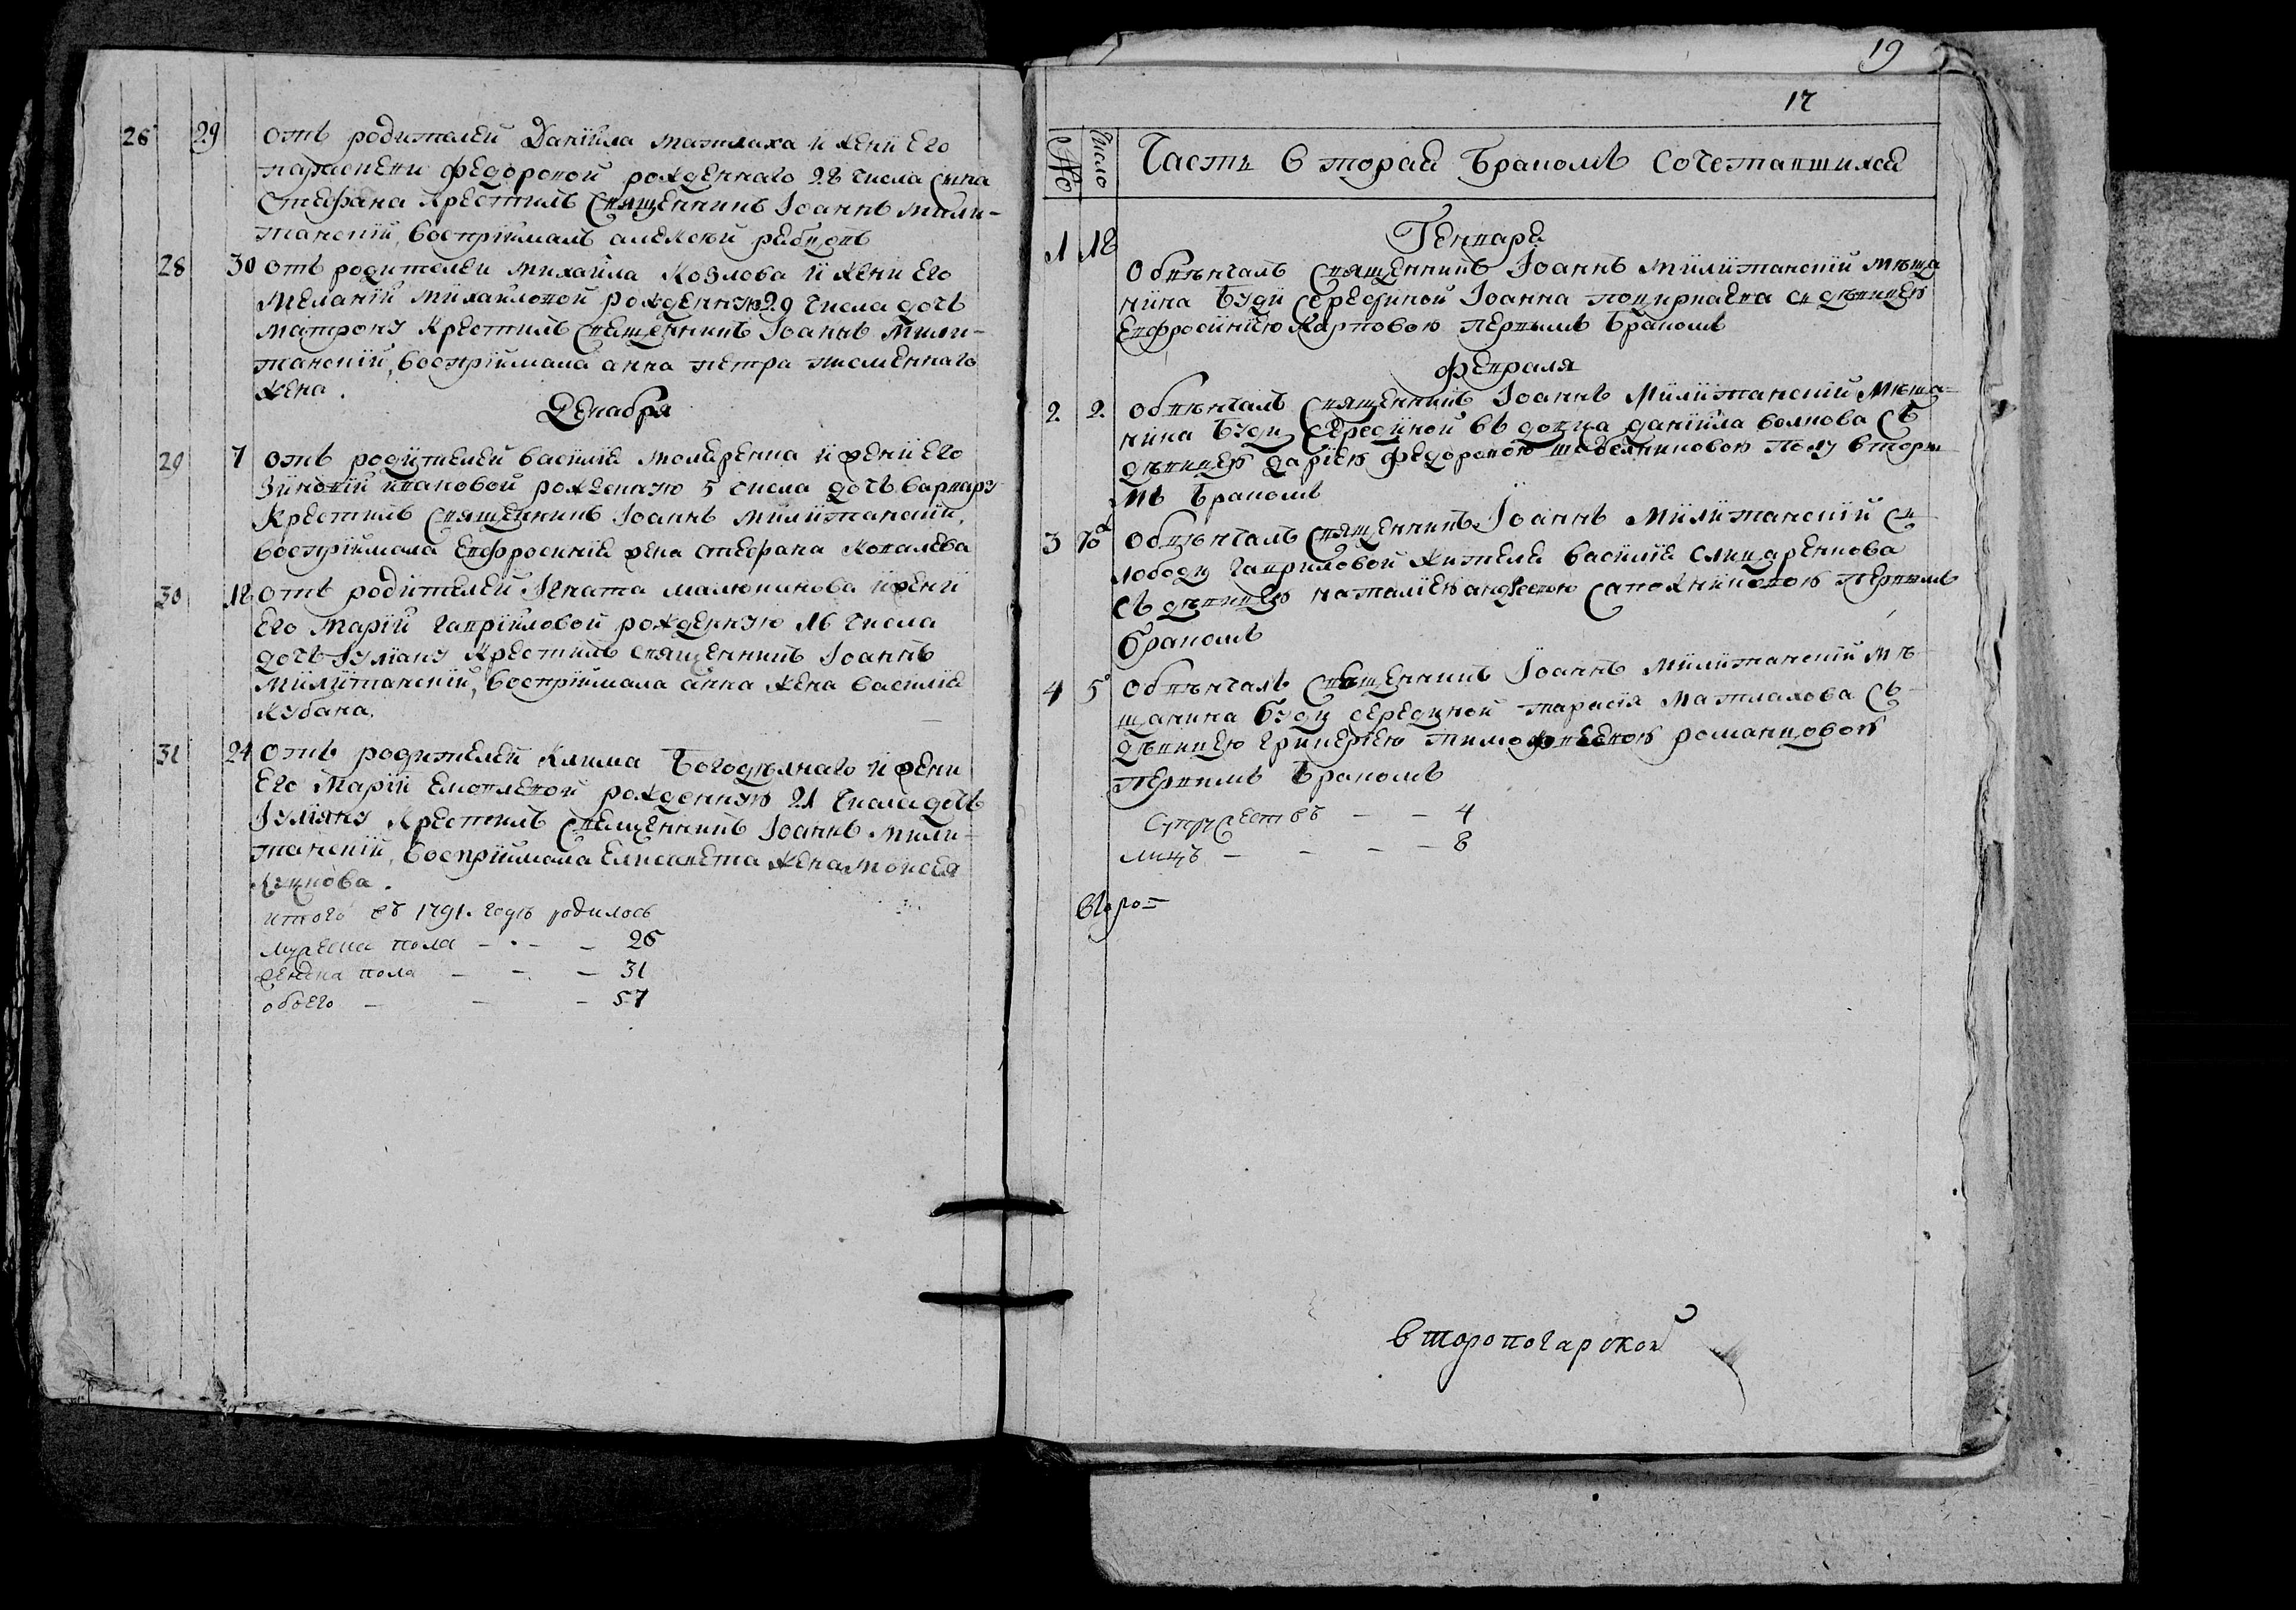 26 29 отъ родителей Данiила матлаха и жени Его
параскеви федоровой рожденнаго 28 числа сина
Стефана крестилъ священникъ Iоаннъ мили-
танскiй, воспрiималъ алексѣй
28 30 отъ родителей михаила козлова и жени Его
меланiи михайловой рожденную 29 числа дочь
матрону крестилъ священникъ Iоаннъ мили-
танскiй, воспрiимала анна петра писменнаго
жена.
Декабря
29 7 отъ родителей василiя и жени Его
Зиновiи ивановой рожденную 5 числа дочь варвару
крестилъ священникъ Iоаннъ милитанскiй,
воспрiимала Евфросинiя жена стефана ковалева
30 18 отъ родителей Игната малюкинова и жени
Его Марiи гаврiиловой рожденную 16 числа
дочь Iулiану крестилъ священникъ Iоаннъ
милитанскiй, воспрiимала анна жена василiя
кубана.
31 24 отъ родителей клима Богодѣлнаго и жени
Его Марiи рожденную 21 числа дочь
Iулiяну крестилъ священникъ Iоаннъ мили-
танскiй, воспрiимала Елисавета жена моисея
итого въ 1791. годѣ родилось
мужеска пола – – – 26
женска пола – – – 31
обоего – – – 57
19
17
№ Число Часть вторая Бракомъ сочетавшихся
Генваря
1 18 обвѣнчалъ священникъ Iоаннъ милитанскiй мѣща
нина Буди серединой Iоанна съ дѣвицею
Евфросинiею карповою первымъ бракомъ
февраля
2 2 обвѣнчалъ священникъ Iоаннъ милитанскiй мѣща-
нина Буди Серединой вдовца данiила волкова съ
дѣвицею дарiею федоровою полу вторы
мъ бракомъ
3 обвѣнчалъ священникъ Iоаннъ милитанскiй с
лободи гавриловой жителя василiя
съ дѣвицею наталiею сапожниковою первымъ
бракомъ
4 5 обвѣнчалъ священникъ Iоаннъ милитанскiй мѣ
щанина Буди серединой тарасiя матлахова съ
дѣвицею тимофѣевою романцовою
первымъ бракомъ
Супружествъ – – 4
лицъ – – – – 8
второпогарской